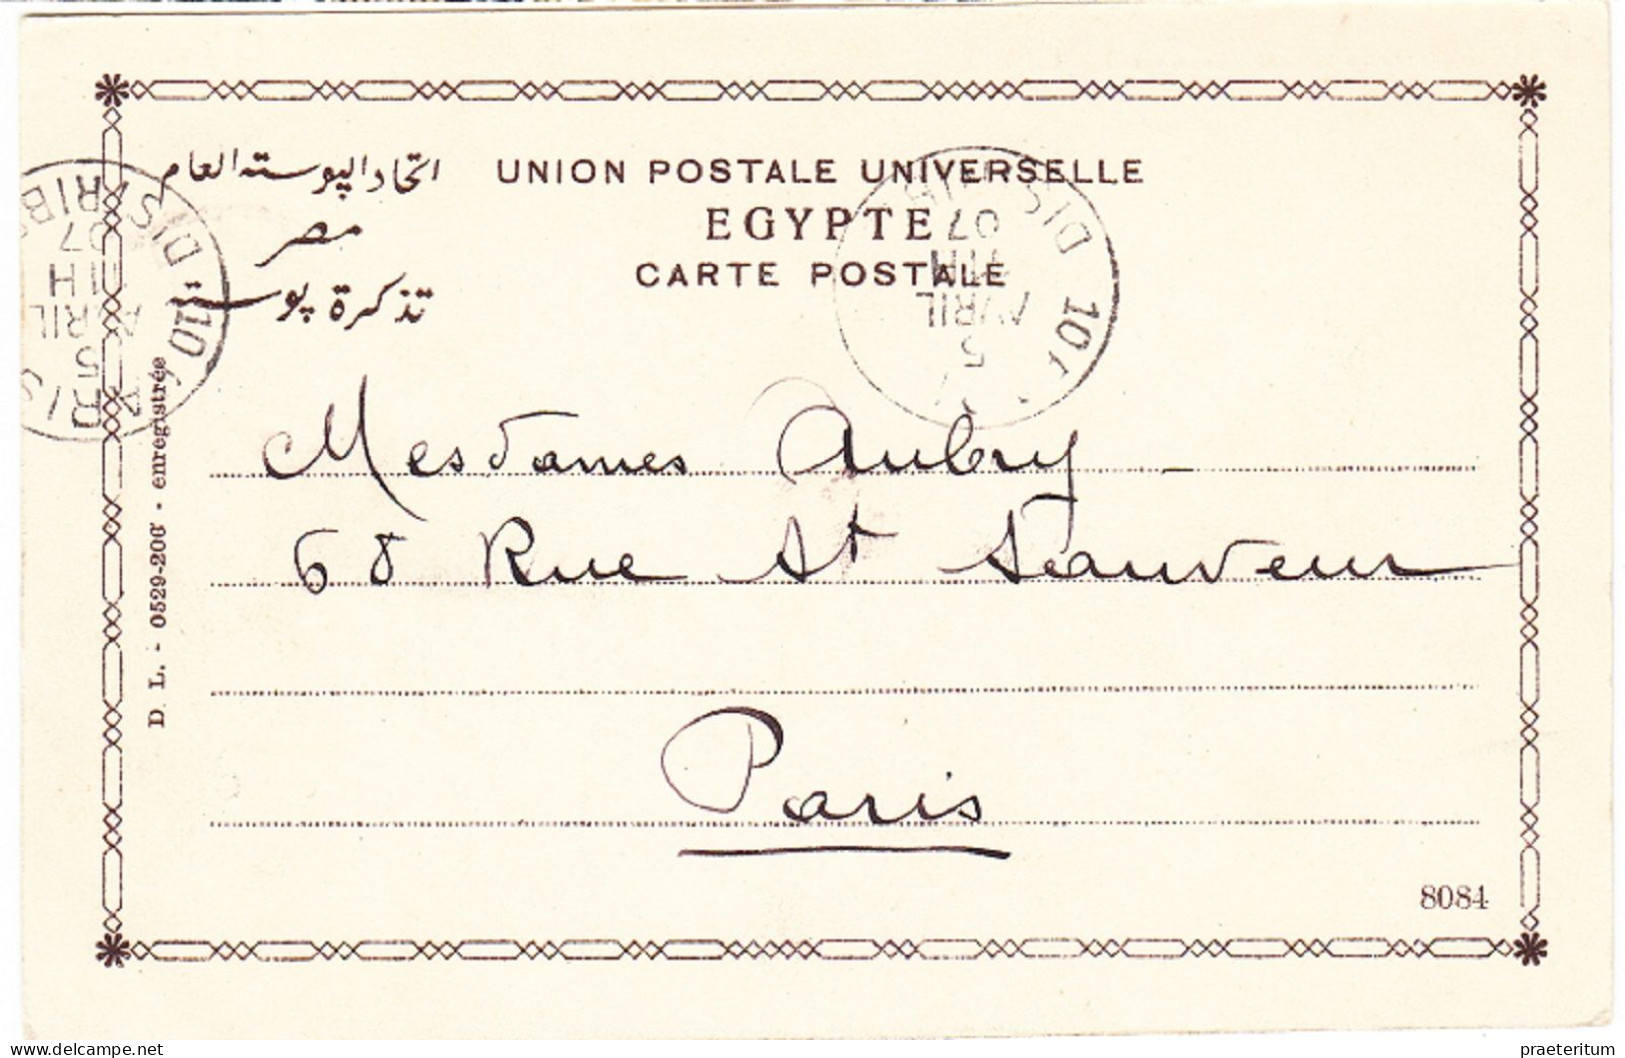 اتحاد البوستة العام
UNION POSTALE UNIVERSELLE
مصر
EGYPTE
تذكرة بوستة
CARTE POSTALE
DISTRIB
07
11H
AVRIL
5
10
DIS
07
11H
AVRIL
5
10
D. L. - 0529-206 - enregistrée
Mesdames Aubry
68 Rue St Sauveur
Paris
8084
delcampe.net
praeteritum